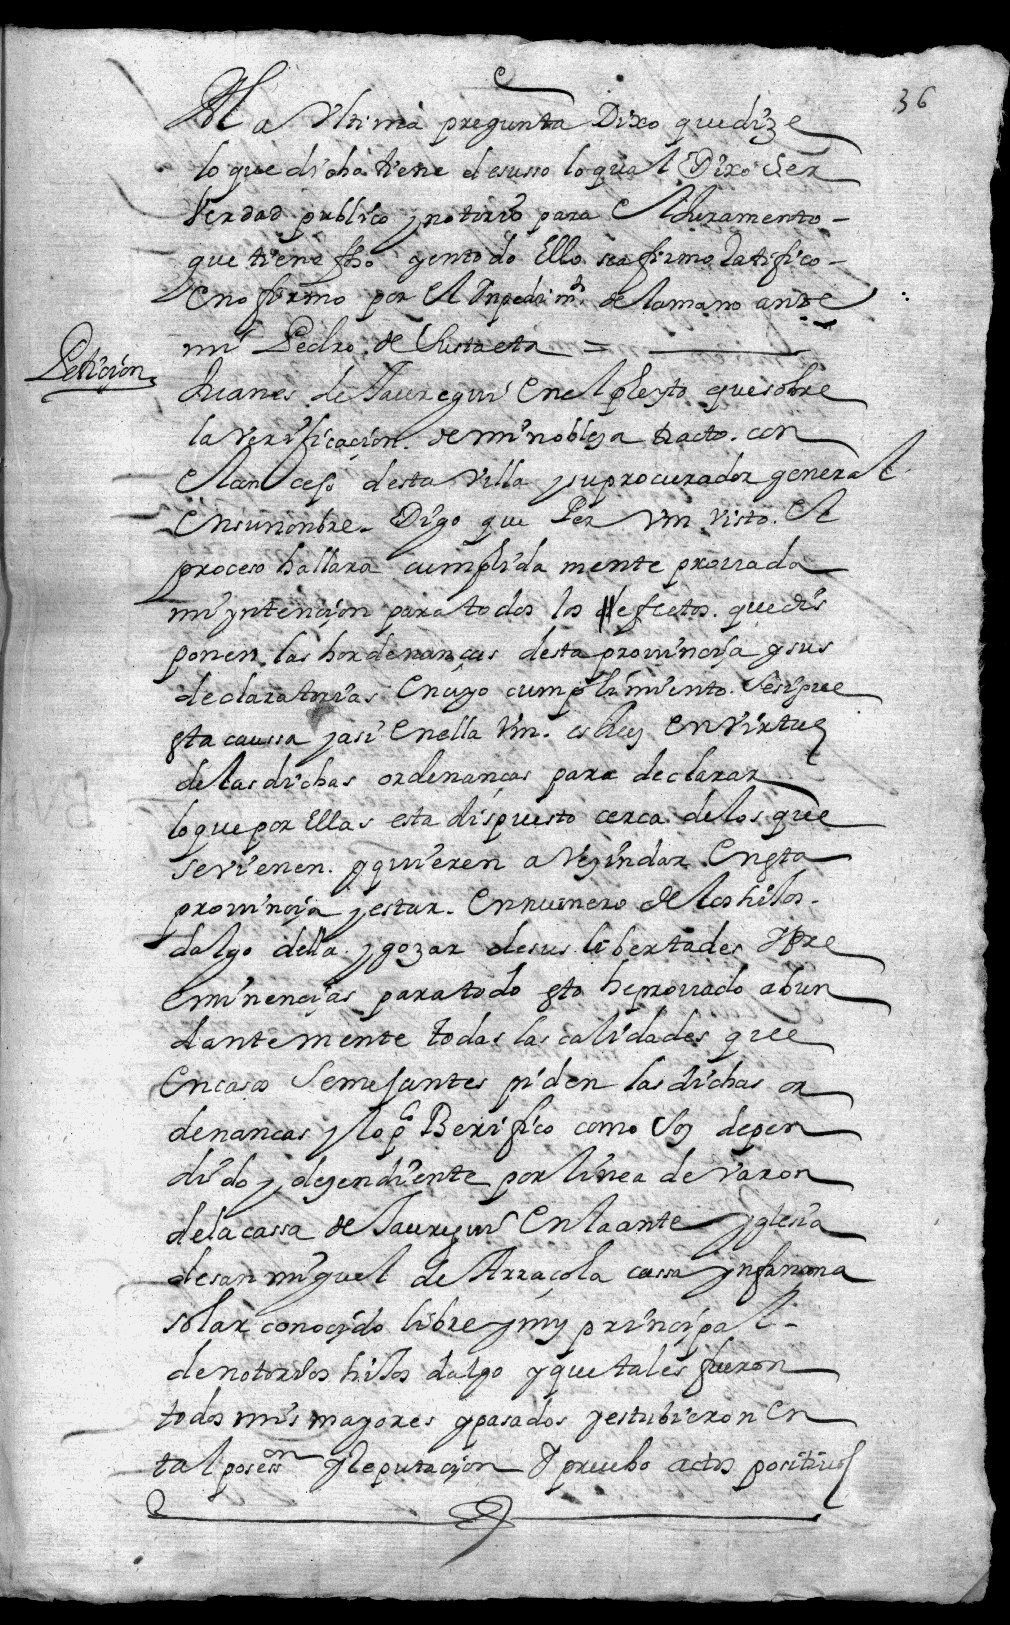 36
A la Vltima pregunta Dixo que dize
lo que dicho tiene desusso lo qual Dixo Ser
Verdad publico y notorio para El Juramento
que tiene fho y en todo Ello se afirmo Ratifico
E no firmo por El Inpedimto de la mano ante
mi Pedro de =
Peticion
Juanes de Jauregui En el pleyto que sobre
la Verificacion de mi nobleza tracto con
El conceso desta Villa y su procurador general
En su nonbre Digo que Por Vm Visto El
proceso hallara cumplida mente provada
mi yntencion para todos los efectos que dis
ponen las hordenanças desta provincia y sus
declaratorias En cuyo cumplimiento Se sigue
esta caussa y asi En ella Vm. es Juez En Virtud
de las dichas ordenanças para declarar
lo que por Ellas esta dispuesto cerca de los que
se vienen y quieren a Vezindar En esta
provincia y estar En numero de los hijos
dalgo della y gozar de sus libertades Y pre
eminencias para todo esto he provado abun
dantemente todas las calidades que
En casos Semejantes piden las dichas or
denancas y lo po Berifico como Soy depen
dido y dezendiente por linea de varon
de la cassa de Jauregui En la ante yglesia
de san miguel de Arraçola cassa ynfançona
solar conocido libre y muy principal
de notorios hijos dalgo y que tales fueron
todos mis mayores y pasados y estubieron En
tal posesson y Reputacion Y pruebo actos positivos